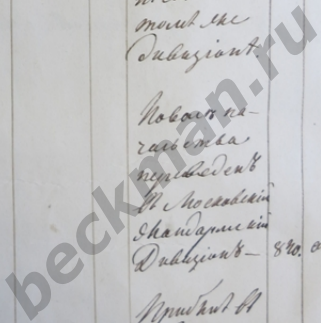 томъ же
дивизіонѣ.
По волѣ на-
чальства
переведенъ
въ Московскій
жандармскій
Дивизіонъ — 840.
Прибылъ въ
beckman.ru